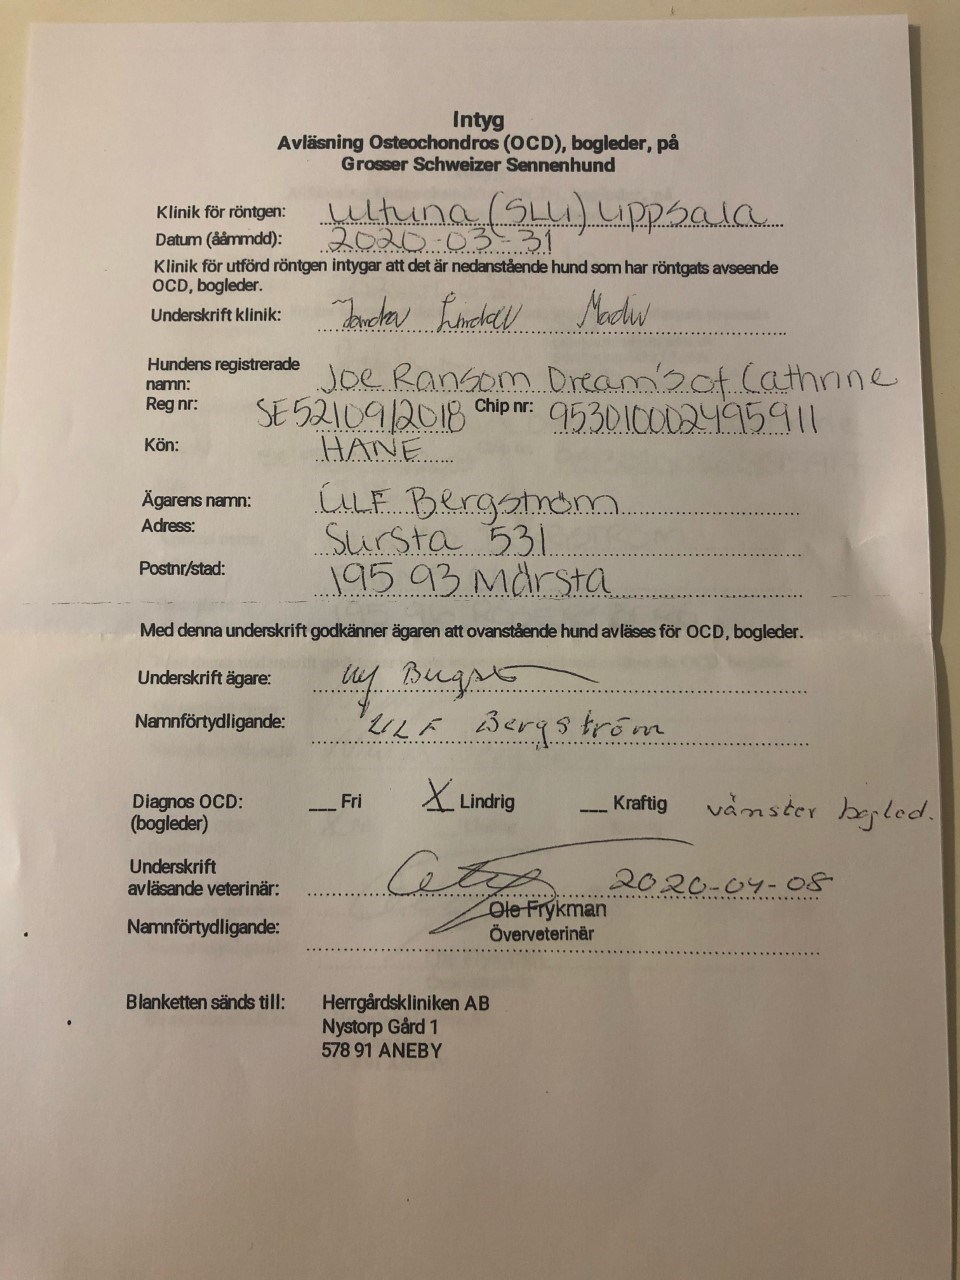 Intyg
Avläsning Osteochondros (OCD), bogleder, på
Grosser Schweizer Sennenhund
Klinik för röntgen: Ultuna (SLU) Uppsala
Datum (ååmmdd): 2020-03-31
Klinik för utförd röntgen intygar att det är nedanstående hund som har röntgats avseende
OCD, bogleder.
Underskrift klinik:
Hundens registrerade
namn: Joe Ransom Dream's of Cathrine
Reg nr: SE52109/2018 Chip nr: 953010002495911
Kön: HANE
Ägarens namn: ULF Bergström
Adress: Sursta 531
Postnr/stad: 195 93 Märsta
Med denna underskrift godkänner ägaren att ovanstående hund avläses för OCD, bogleder.
Underskrift ägare:
Namnförtydligande: ULF Bergström
Diagnos OCD: ___ Fri X Lindrig ___ Kraftig vänster bogled.
(bogleder)
Underskrift
avläsande veterinär: 2020-04-08
Ole Frykman
Namnförtydligande: Överveterinär
Blanketten sänds till: Herrgårdskliniken AB
Nystorp Gård 1
578 91 ANEBY